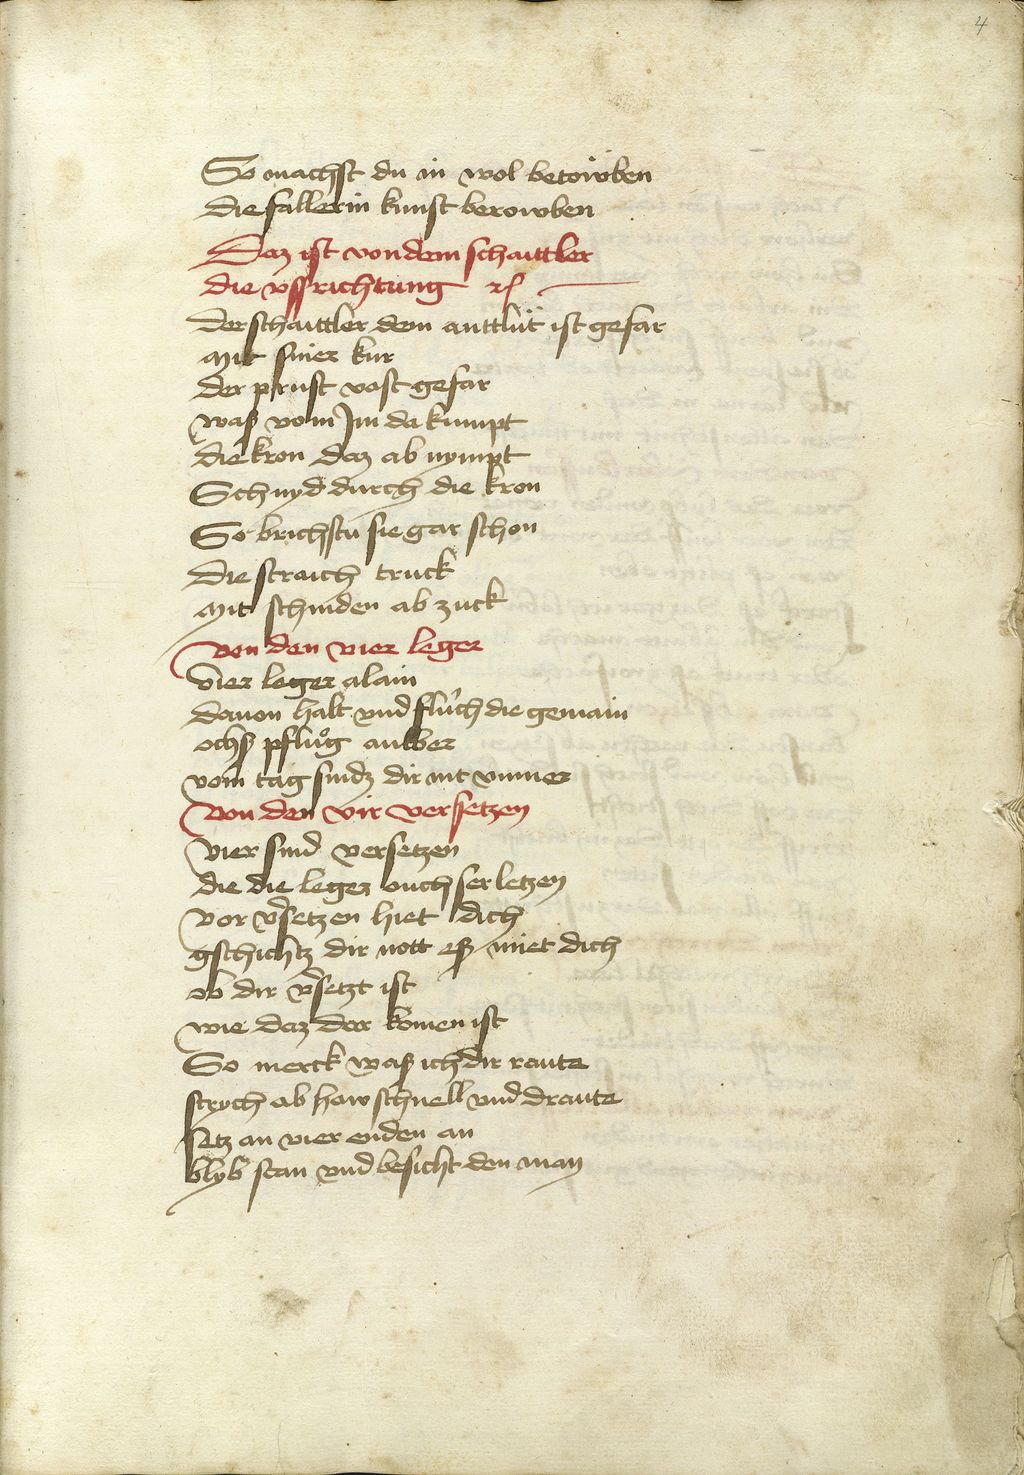 4
So machst du in wol betöwben
die fäller in kunst berowben
Daz ist von dem schaittler
die vssrichtung ꝛc
Der schaittler dem anttlüt ist gefar
Mit siner kur
der prust vast gefar
waß vom Jm da kumpt
die kron daz ab nympt
Schnyd durch die kron
So brichstu sie gar schon
Die straich truck
Mit schniden ab zuck
Von den vier leger
Vier leger alain
dauon halt vnd flüch die gemain
ochß pflůg aulber
vom tag sindz dir nit vnmer
Von den vir versetzen
Vier sind versetzen
die die leger ouch ser letzen
Vor v͛setzen hiet dich
gschichtz dir nott eß miet dich
ob dir v͛setzt ist
wie daz dar komen ist
So merck waß ich dir raute
strych ab how schnell vnd draute
setz an vier enden an
blyb stan vnd besicht den man